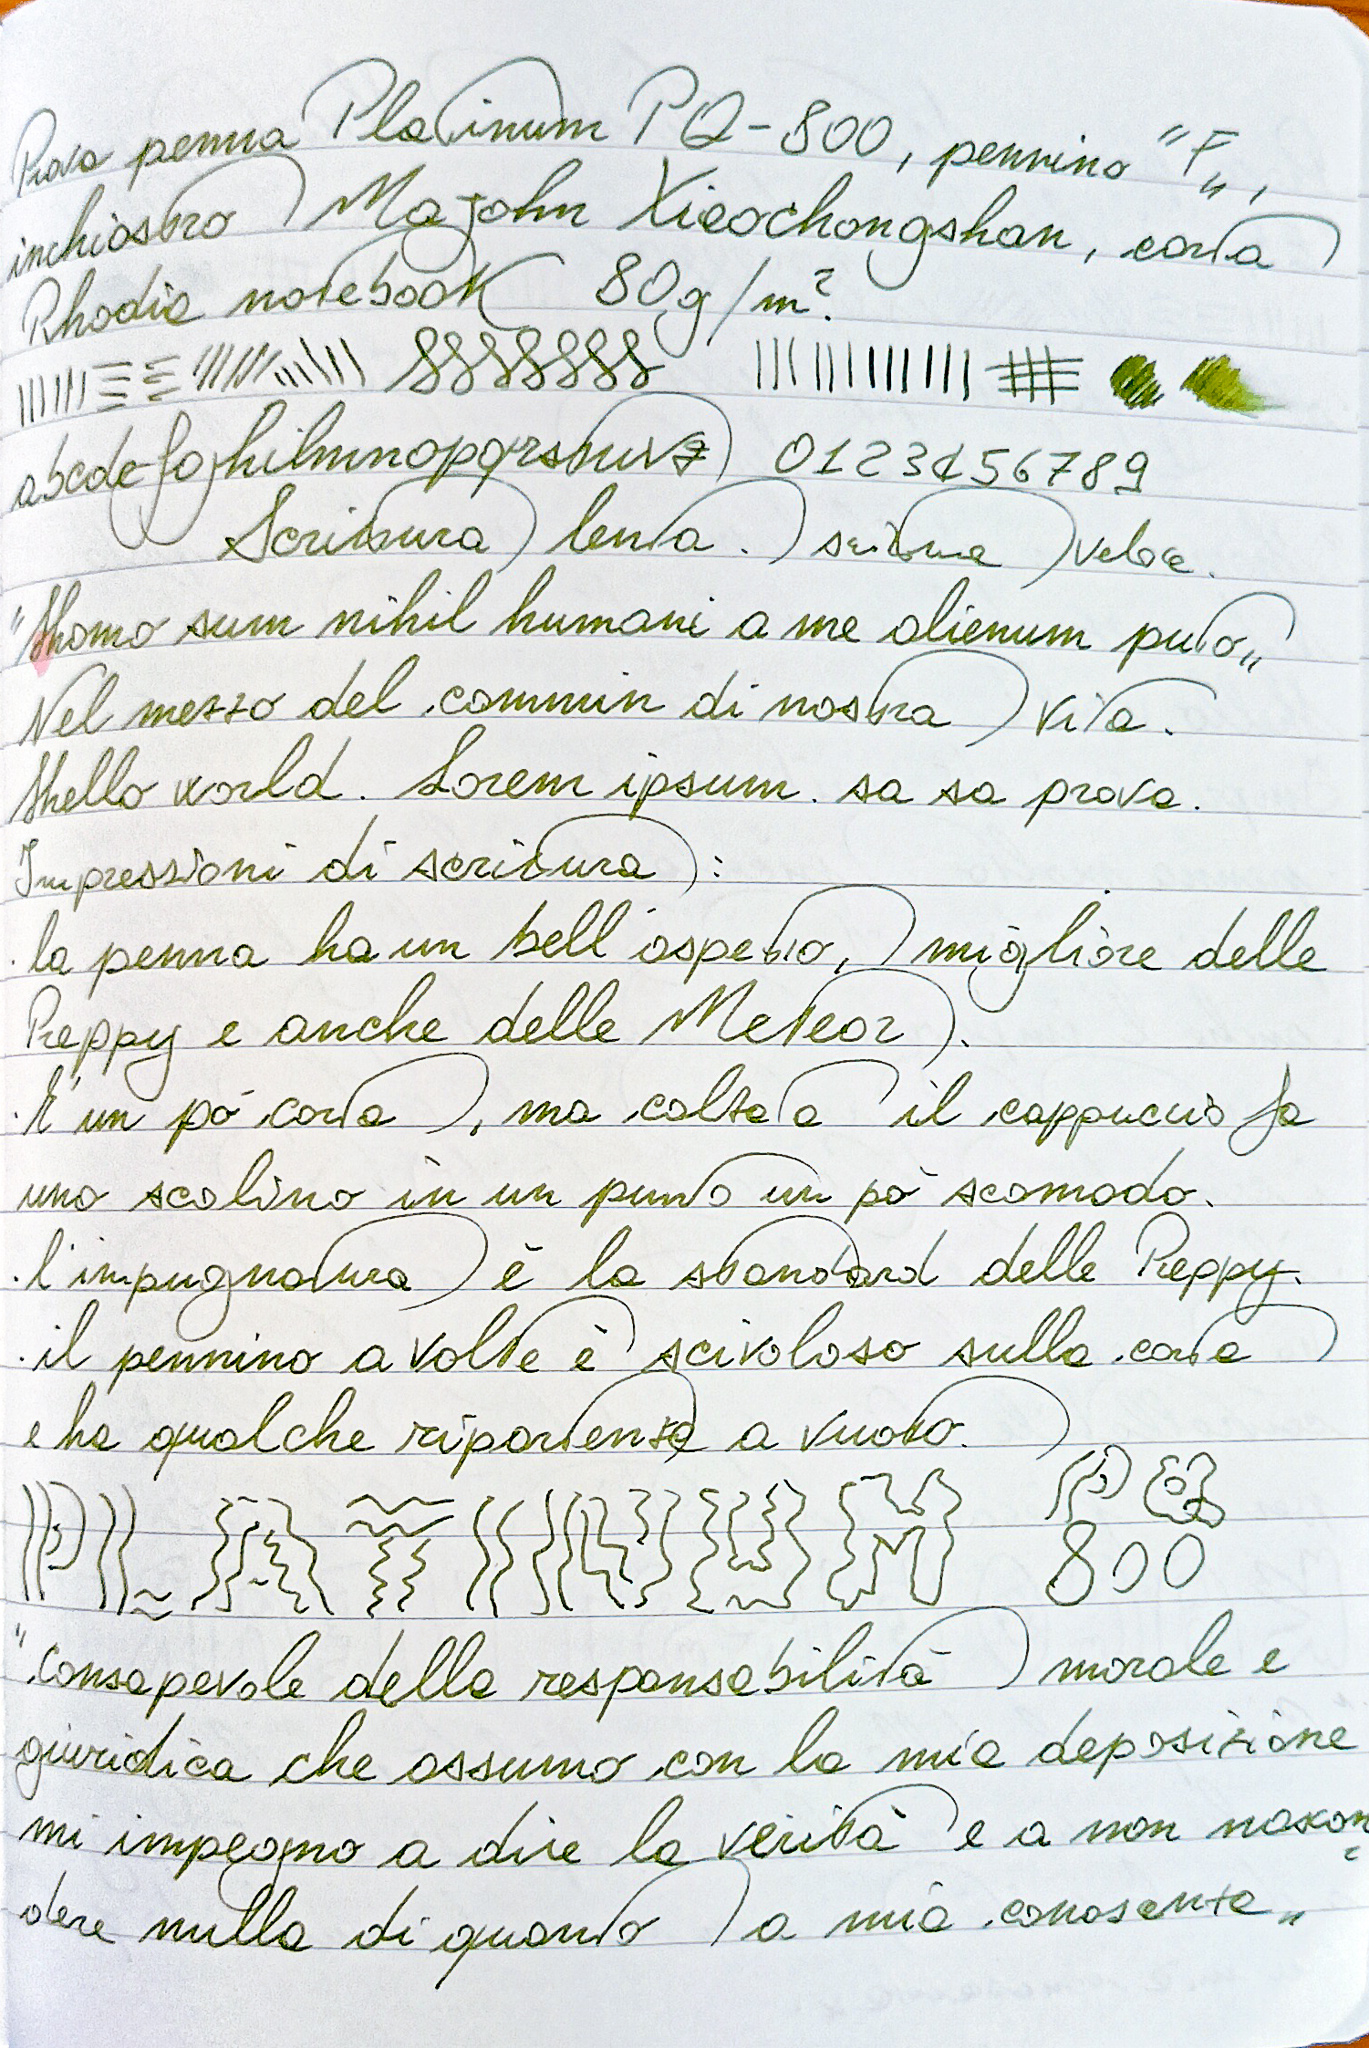 Prova penna Platinum PQ-800, pennino "F",
inchiostro Majohn Xieochongshan, carta
Rhodia notebook 80g/m².
abcdefghilmnopqrstuvz 0123456789
Scrittura lenta. scrittura veloce.
"Homo sum nihil humani a me alienum puto"
Nel mezzo del cammin di nostra vita.
Hello world. Lorem ipsum. sa sa prova.
Impressioni di scrittura:
. la penna ha un bell'aspetto, migliore delle
Preppy e anche delle Meteor.
. E' un pò corta, ma calzata il cappuccio fa
uno scalino in un punto un pò scomodo.
. l'impugnatura è la standard delle Preppy.
. il pennino a volte è scivoloso sulla carta
e ha qualche ripartenza a vuoto.
PLATINUM PQ
800
"Consapevole della responsabilità morale e
giuridica che assumo con la mia deposizione
mi impegno a dire la verità e a non nascon-
dere nulla di quanto a mia conoscenza"